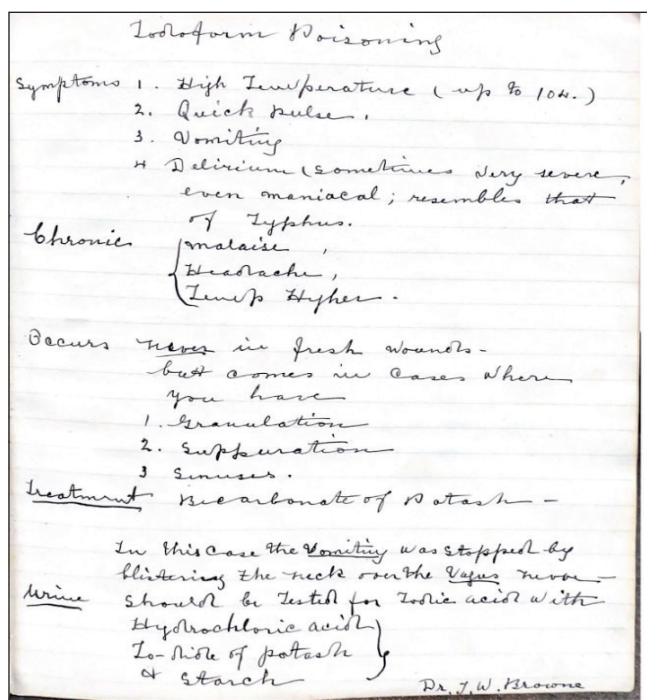 Iodoform Poisoning
Symptoms 1. High Temperature (up to 104.)
2. Quick pulse.
3. Vomiting
4 Delirium (sometimes very severe,
even maniacal; resembles that
of Typhus.
Chronic malaise,
Headache,
Temp Higher.
Occurs never in fresh wounds -
but comes in cases where
you have
1. Granulation
2. Suppuration
3 Sinuses.
Treatment Bicarbonate of Potash -
In this case the Vomiting was stopped by
blistering the neck over the Vagus nerve -
Urine should be Tested for Iodic acid with
Hydrochloric acid
Io-dide of potash
& Starch
Dr. J. W. Browne